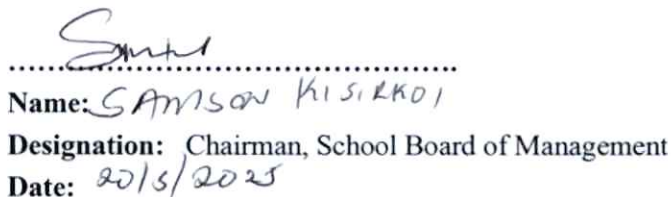 Name: SAMSON KISIRKOI
Designation: Chairman, School Board of Management
Date: 20/5/2025